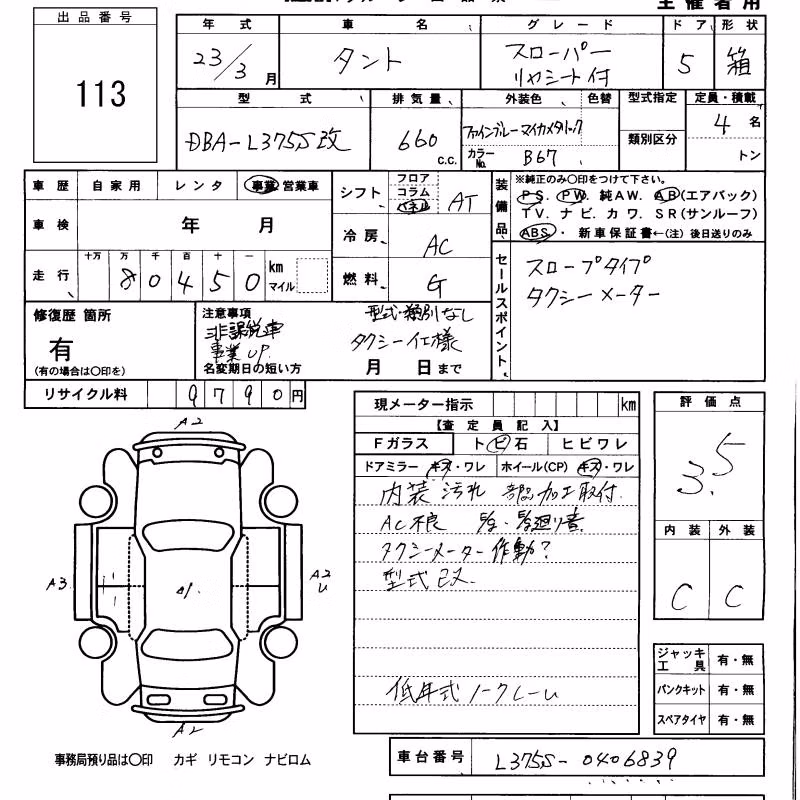 主催者用
出品番号
113
年式 車名 グレード ドア 形状
23/3月 タント スローパー リヤシート付 5 箱
型式 排気量 外装色 色替 型式指定 定員・積載
DBA-L375S改 660 c.c. ファインブルーマイカメタリック 4名
カラーNo. B67 類別区分 トン
車歴 自家用 レンタ 事業 営業車
シフト フロア コラム パネル AT
装備品 ※純正のみ○印をつけて下さい。
PS. PW. 純AW. AB(エアバック)
TV. ナビ. カワ. SR(サンルーフ)
ABS. 新車保証書←(注)後日送りのみ
車検 年 月
冷房 AC
走行 十万 万 千 百 十 一
80450 km マイル
燃料 G
セールスポイント
スロープタイプ
タクシーメーター
修復歴 箇所
有
(有の場合は○印を)
注意事項
非課税車
事業UP.
型式・類別なし
タクシー仕様
名変期日の短い方 月 日まで
リサイクル料 9790円
現メーター指示 km
【査定員記入】
Fガラス トビ石 ヒビワレ
ドアミラー キズ・ワレ ホイール(CP) キズ・ワレ
内装汚れ 加工取付.
AC不良
タクシーメーター作動?
型式改.
低年式ノークレーム
評価点
3.5
内装 外装
C C
A2
A3
A2
U
A2
ジャッキ工具 有・無
パンクキット 有・無
スペアタイヤ 有・無
事務局預り品は○印 カギ リモコン ナビロム
車台番号 L375S-0406839